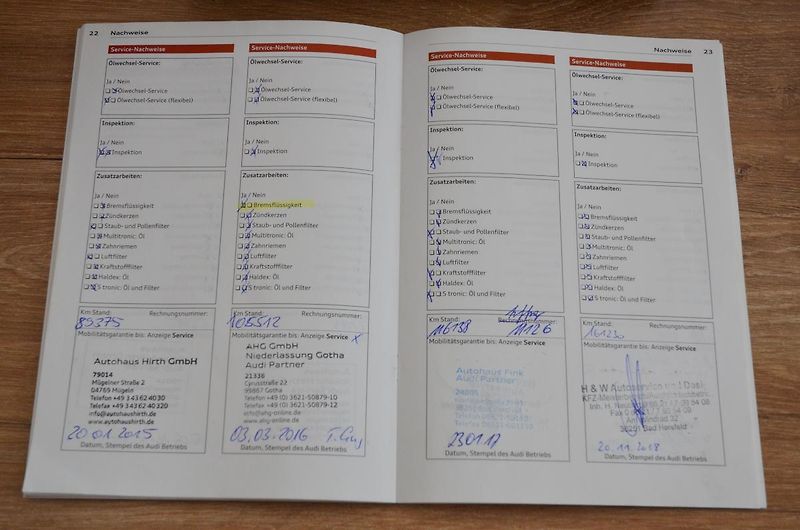 22 Nachweise
Service-Nachweise
Ölwechsel-Service:
Ja / Nein
Ölwechsel-Service
Ölwechsel-Service (flexibel)
Inspektion:
Ja / Nein
Inspektion
Zusatzarbeiten:
Ja / Nein
Bremsflüssigkeit
Zündkerzen
Staub- und Pollenfilter
Multitronic: Öl
Zahnriemen
Luftfilter
Kraftstofffilter
Haldex: Öl
S tronic: Öl und Filter
Km Stand: Rechnungsnummer:
89375
Mobilitätsgarantie bis: Anzeige Service
Autohaus Hirth GmbH
79014
Mügelner Straße 2
04769 Mügeln
Telefon +49 34362 40320
Telefax +49 34362 40 320
info@autohaushirth.de
www.autohaushirth.de
20.01.2015
Datum, Stempel des Audi Betriebs
Service-Nachweise
Ölwechsel-Service:
Ja / Nein
Ölwechsel-Service
Ölwechsel-Service (flexibel)
Inspektion:
Ja / Nein
Inspektion
Zusatzarbeiten:
Ja / Nein
Bremsflüssigkeit
Zündkerzen
Staub- und Pollenfilter
Multitronic: Öl
Zahnriemen
Luftfilter
Kraftstofffilter
Haldex: Öl
S tronic: Öl und Filter
Km Stand: Rechnungsnummer:
105512
Mobilitätsgarantie bis: Anzeige Service X
AHG GmbH
Niederlassung Gotha
Audi Partner
21336
Cyrusstraße 22
99867 Gotha
Telefon +49 (0) 3621-50879-10
Telefax +49 (0) 3621-50879-12
info@ahg-online.de
www.ahg-online.de
03.03.2016
Datum, Stempel des Audi Betriebs
Nachweise 23
Service-Nachweise
Ölwechsel-Service:
Ja / Nein
Ölwechsel-Service
Ölwechsel-Service (flexibel)
Inspektion:
Ja / Nein
Inspektion
Zusatzarbeiten:
Ja / Nein
Bremsflüssigkeit
Zündkerzen
Staub- und Pollenfilter
Multitronic: Öl
Zahnriemen
Luftfilter
Kraftstofffilter
Haldex: Öl
S tronic: Öl und Filter
Km Stand: Rechnungsnummer:
116138 11126
Mobilitätsgarantie bis: Anzeige Service
Autohaus Fink
Audi Partner
23.01.17
Datum, Stempel des Audi Betriebs
Service-Nachweise
Ölwechsel-Service:
Ja / Nein
Ölwechsel-Service
Ölwechsel-Service (flexibel)
Inspektion:
Ja / Nein
Inspektion
Zusatzarbeiten:
Ja / Nein
Bremsflüssigkeit
Zündkerzen
Staub- und Pollenfilter
Multitronic: Öl
Zahnriemen
Luftfilter
Kraftstofffilter
Haldex: Öl
S tronic: Öl und Filter
Km Stand: Rechnungsnummer:
161230
Mobilitätsgarantie bis: Anzeige Service
H & W Autoservice
36251 Bad Hersfeld
20.11.2018
Datum, Stempel des Audi Betriebs